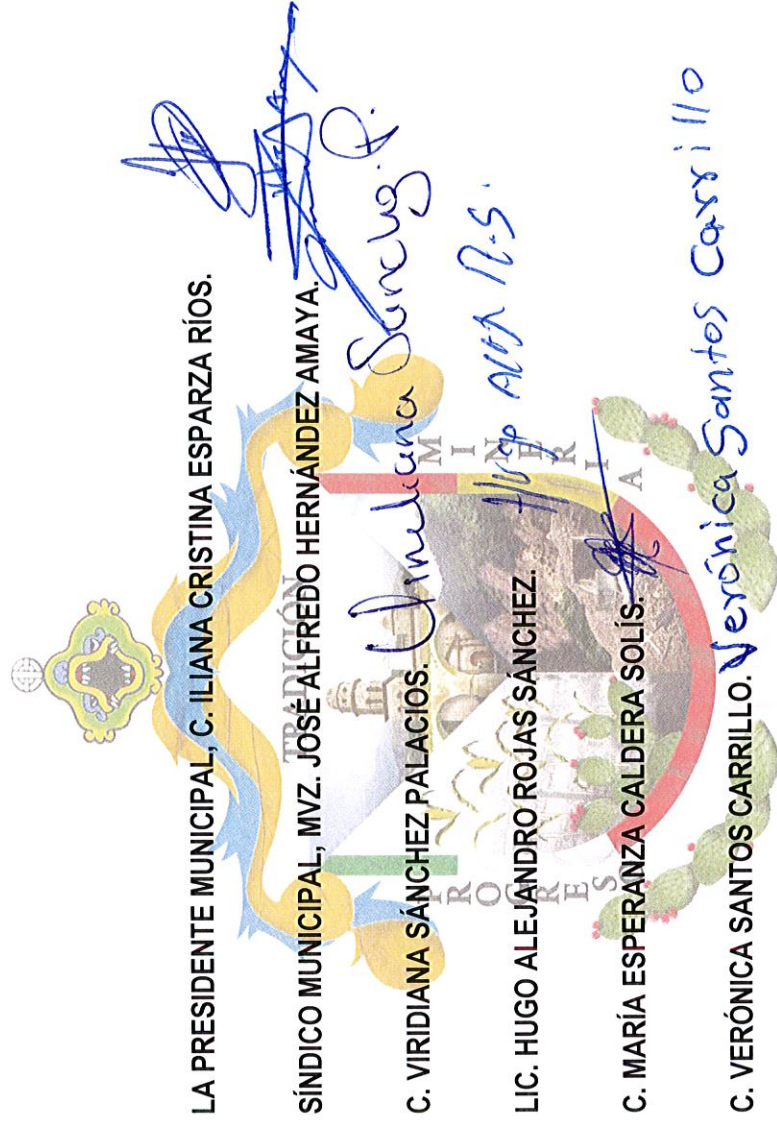 LA PRESIDENTE MUNICIPAL, C. ILIANA CRISTINA ESPARZA RÍOS.
SÍNDICO MUNICIPAL, MVZ. JOSÉ ALFREDO HERNÁNDEZ AMAYA.
TRADICIÓN
C. VIRIDIANA SÁNCHEZ PALACIOS. Viridiana Sánchez P.
LIC. HUGO ALEJANDRO ROJAS SÁNCHEZ. Hugo Alej R.S.
C. MARÍA ESPERANZA CALDERA SOLÍS.
C. VERÓNICA SANTOS CARRILLO. Verónica Santos Carrillo
PROGRESO
MINERIA